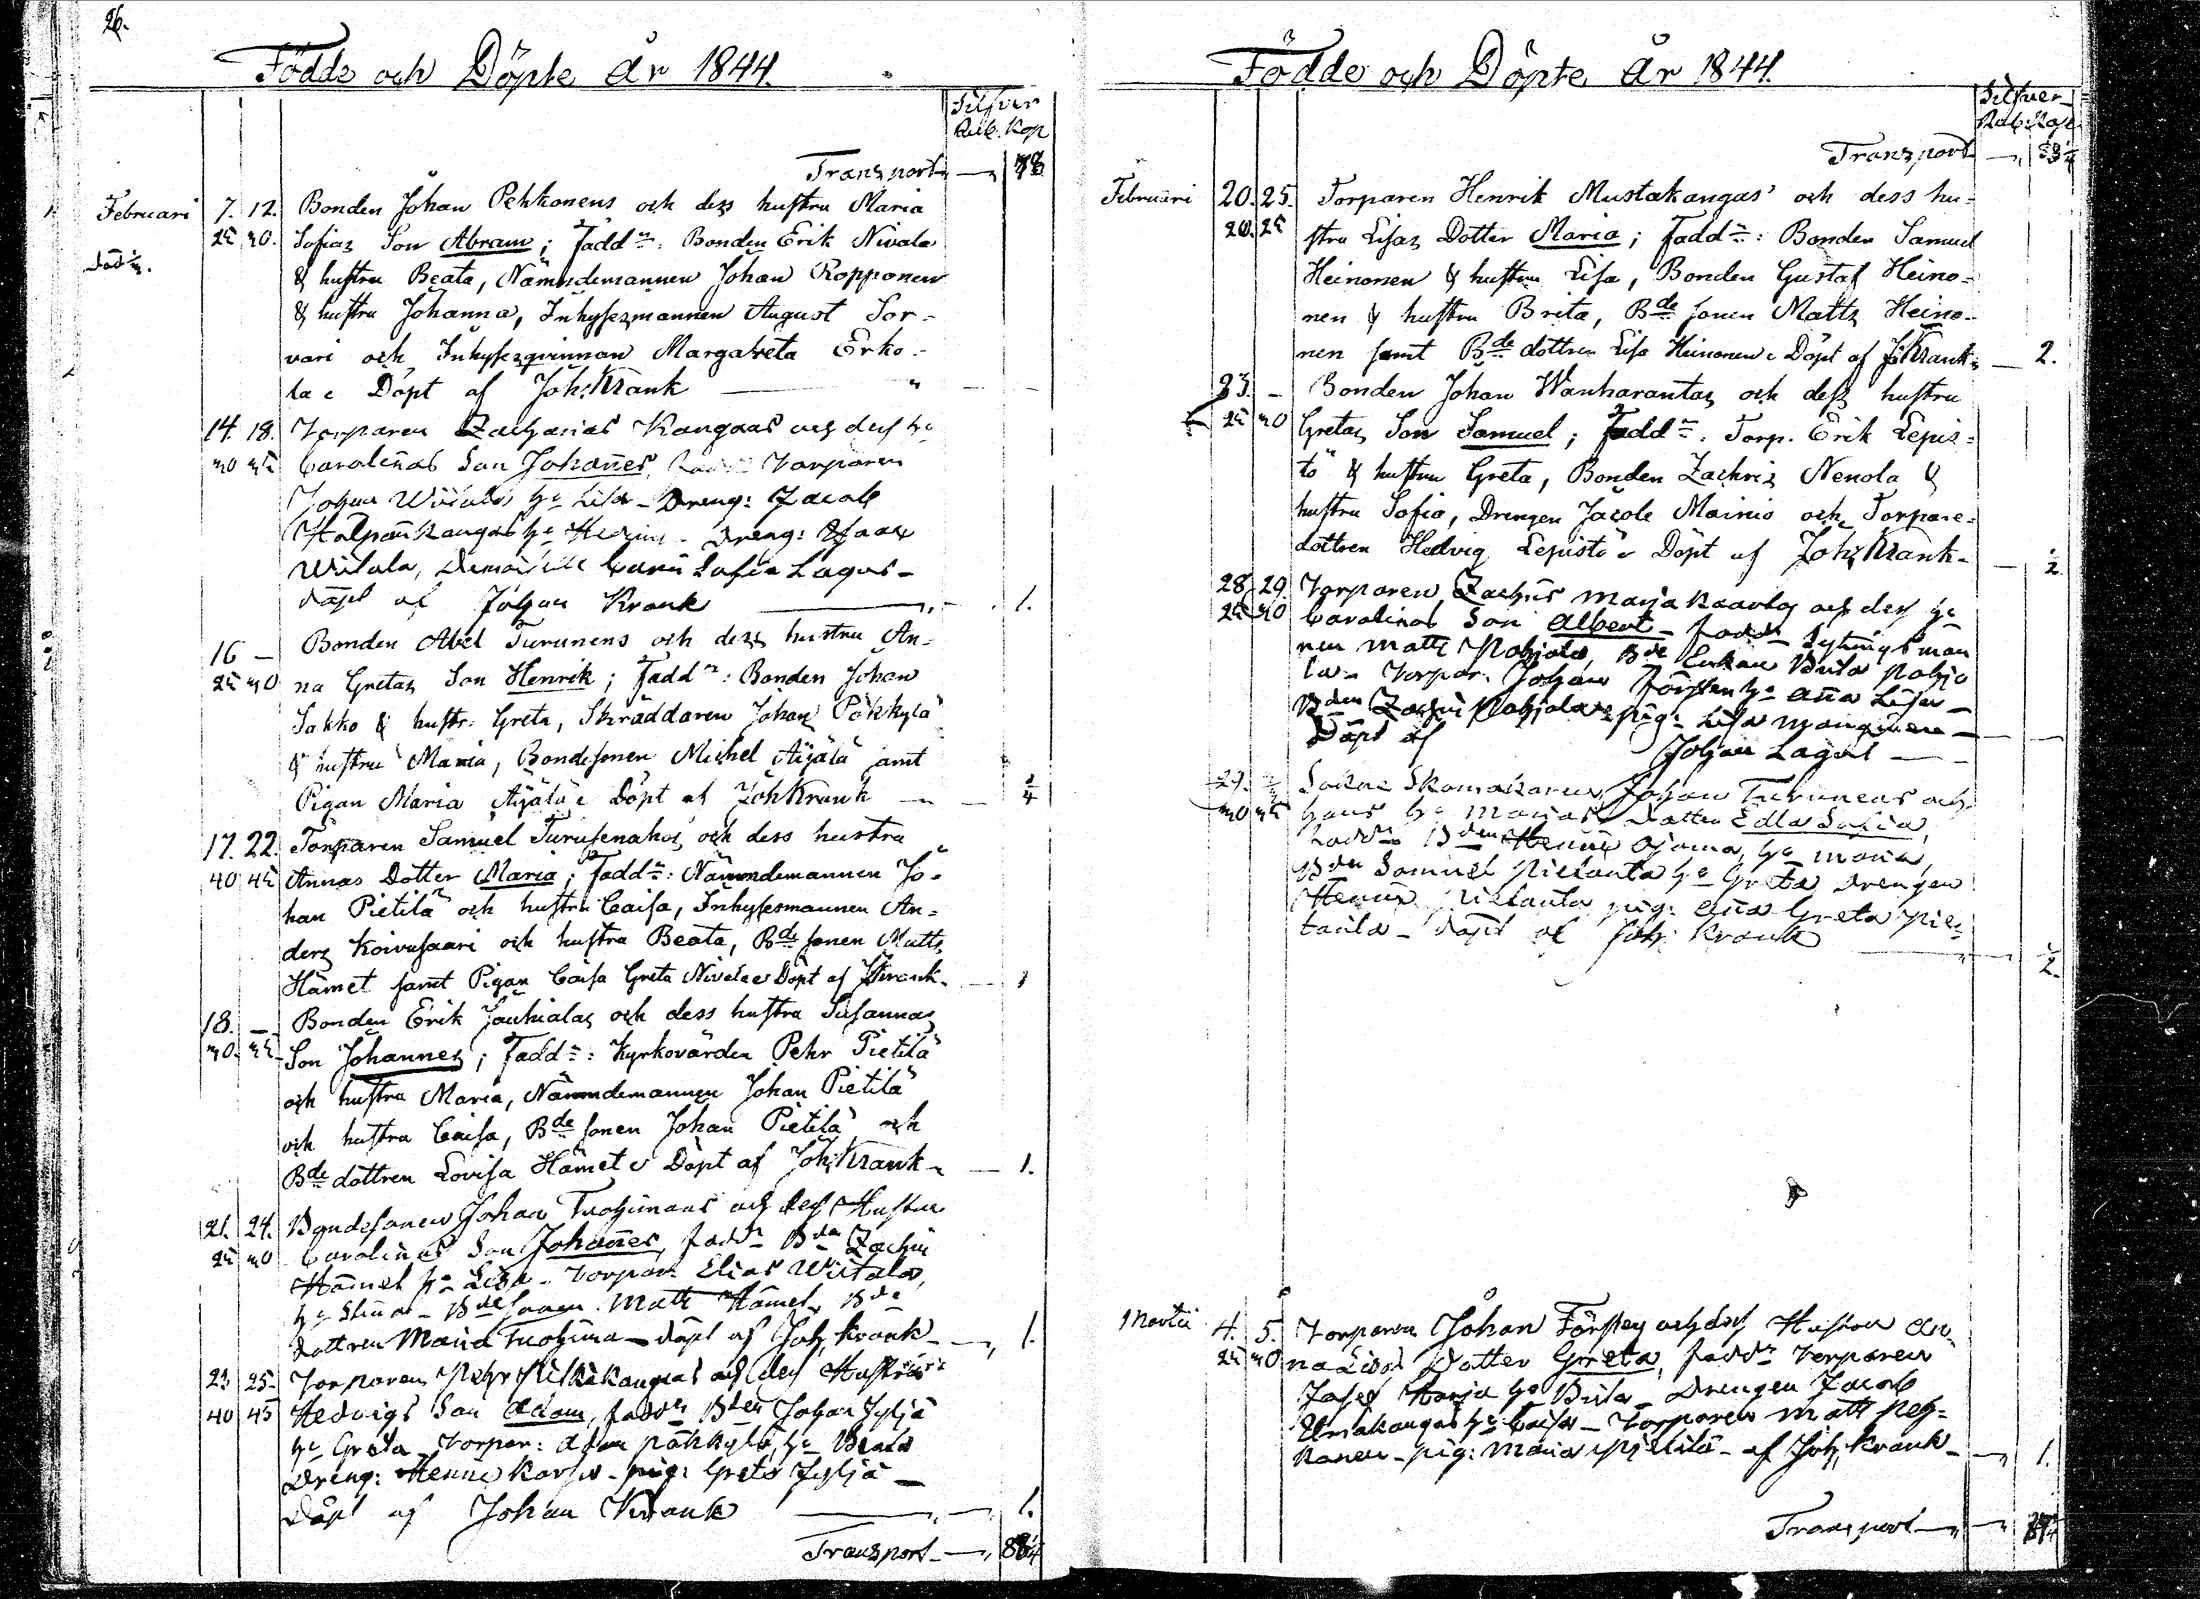 26.
Födde och Döpte år 1844.
Silfver
Rub. Kop
Transport — 78
Februari 7. 12. Bonden Johan Pehkonens och dess hustru Maria
25 30. Sofias Son Abram; Fadd:r: Bonden Erik Nivala
död
& hustru Beata, Nämndemannen Johan Ropponen
& hustru Johanna, Inhysesmannen August Sor-
vari och Inhysesqvinnan Margareta Erko-
la Döpt af Joh: Krank — "
14. 18. Torparen Zacharias Kangaas och dess h:u
30 35 Carolinas Son Johañes, Fadd:r Torparen
Johan Wiitala h:u Lisa - Dreng: Jacob
Halpañkangas h:u - Dreng: Isaac
Witala, Demoiselle Sofia Lagus -
döpt af Johan Krank — 1.
16 — Bonden Abel Turunens och dess hustru An-
25 30 na Gretas Son Henrik; Fadd:r: Bonden Johan
Sakko & hustr. Greta, Skräddaren Johan Pökkylä
& hustru Maria, Bondesonen Michel Äijälä samt
Pigan Maria Äijälä Döpt af Joh Krank —
17. 22. Torparen Samuel Turusenahos och dess hustru
40 45 Annas Dotter Maria; Fadd:r: Nämndemannen Jo-
han Pietilä och hustru Caisa, Inhysesmannen An-
ders Koivusaari och hustru Beata, B:de sonen Matts
Hämet samt Pigan Caisa Greta Nivala Döpt af J Krank. — 1
18. — Bonden Erik Jauhialas och dess hustru Susannas
30. 35. Son Johannes; Fadd:r: Kyrkovärden Pehr Pietilä
och hustru Maria, Nämndemannen Johan Pietilä
och hustru Caisa, B:de sonen Johan Pietilä och
B:de dottren Lovisa Hämet Döpt af Joh: Krank — 1.
21. 24. Bondesonen Johan Tuohimaas och dess Hustru
25 30 Carolinas Son Johañes, fadd:r B:den Zachris
Hämet h:u Lisa - Torpar: Elias Wiitala,
h:u Stina - B:de sonen Matts Hämet, B:de
dottren Maria Tuohimaa - döpt af Joh, Krank — 1.
23 25. Torparen Pehr Pitkäkangas och dess Hustrus
40 45 Hedvigs Son Adam, fadd:r B:den Johan Jyljä
h:u Greta - Torpar: Adam Pökkylä, h:u Beata
Dreng: Henric - pig: Greta Jyljä -
Döpt af Johan Krank — 1.
Transport —
Födde och Döpte år 1844.
Silfver
Rub: Kop.
Transport —
Februari 20. 25. Torparen Henrik Mustakangas' och dess hu-
20. 25 stru Lisas Dotter Maria; Fadd:r: Bonden Samuel
Heinonen & hustru Lisa, Bonden Gustaf Heino-
nen & hustru Brita, B:de sonen Matts Heino-
nen samt B:de dottren Lisa Heinonen Döpt af J Krank. — 2.
23. — Bonden Johan Wanharantas och dess hustru
25 30 Gretas Son Samuel; Fadd:r. Torp. Erik Lepis-
tö & hustru Greta, Bonden Zachris Nenola &
hustru Sofia, Drengen Jacob Mainio och Torpare-
dottren Hedvig Lepistö Döpt af Joh: Krank. — 2
28 29. Torparen Zachris Marjakaarto och dess h:u
25 30 Carolinas Son Albert - fadd:r Sytningsmañ
nen Matts Pohjola, B:de Enkan Brita Pohjo
la - Torpar: Johan Försten h:u Aña Lisa -
B:den Zachris Pohjola pig: Lisa Manginen -
Döpt af Johan Lagus —
29. Sockne Skomakaren Johan Turuneus och
30 35 hans h:u Marias Dotter Edla Sofia,
Fadd:r B:den Henric Ojama, h:u Maria,
B:den Samuel Pietaula h:u Greta, Drengen
Henric Pietaula pig: Aña Greta Pie-
taula - döpt af Joh: Krank — 2.
Martii 4. 5. Torparen Johan Försten och dess Hustru An-
25 30 na Lisas Dotter Greta, fadd:r Torparen
Josef Harja h:u Brita - Drengen Jacob
Elmäkangas h:u Caisa - Torparen Matts Peh-
konen - pig: Maria Pietilä - af Joh, Krank — 1.
Transport —